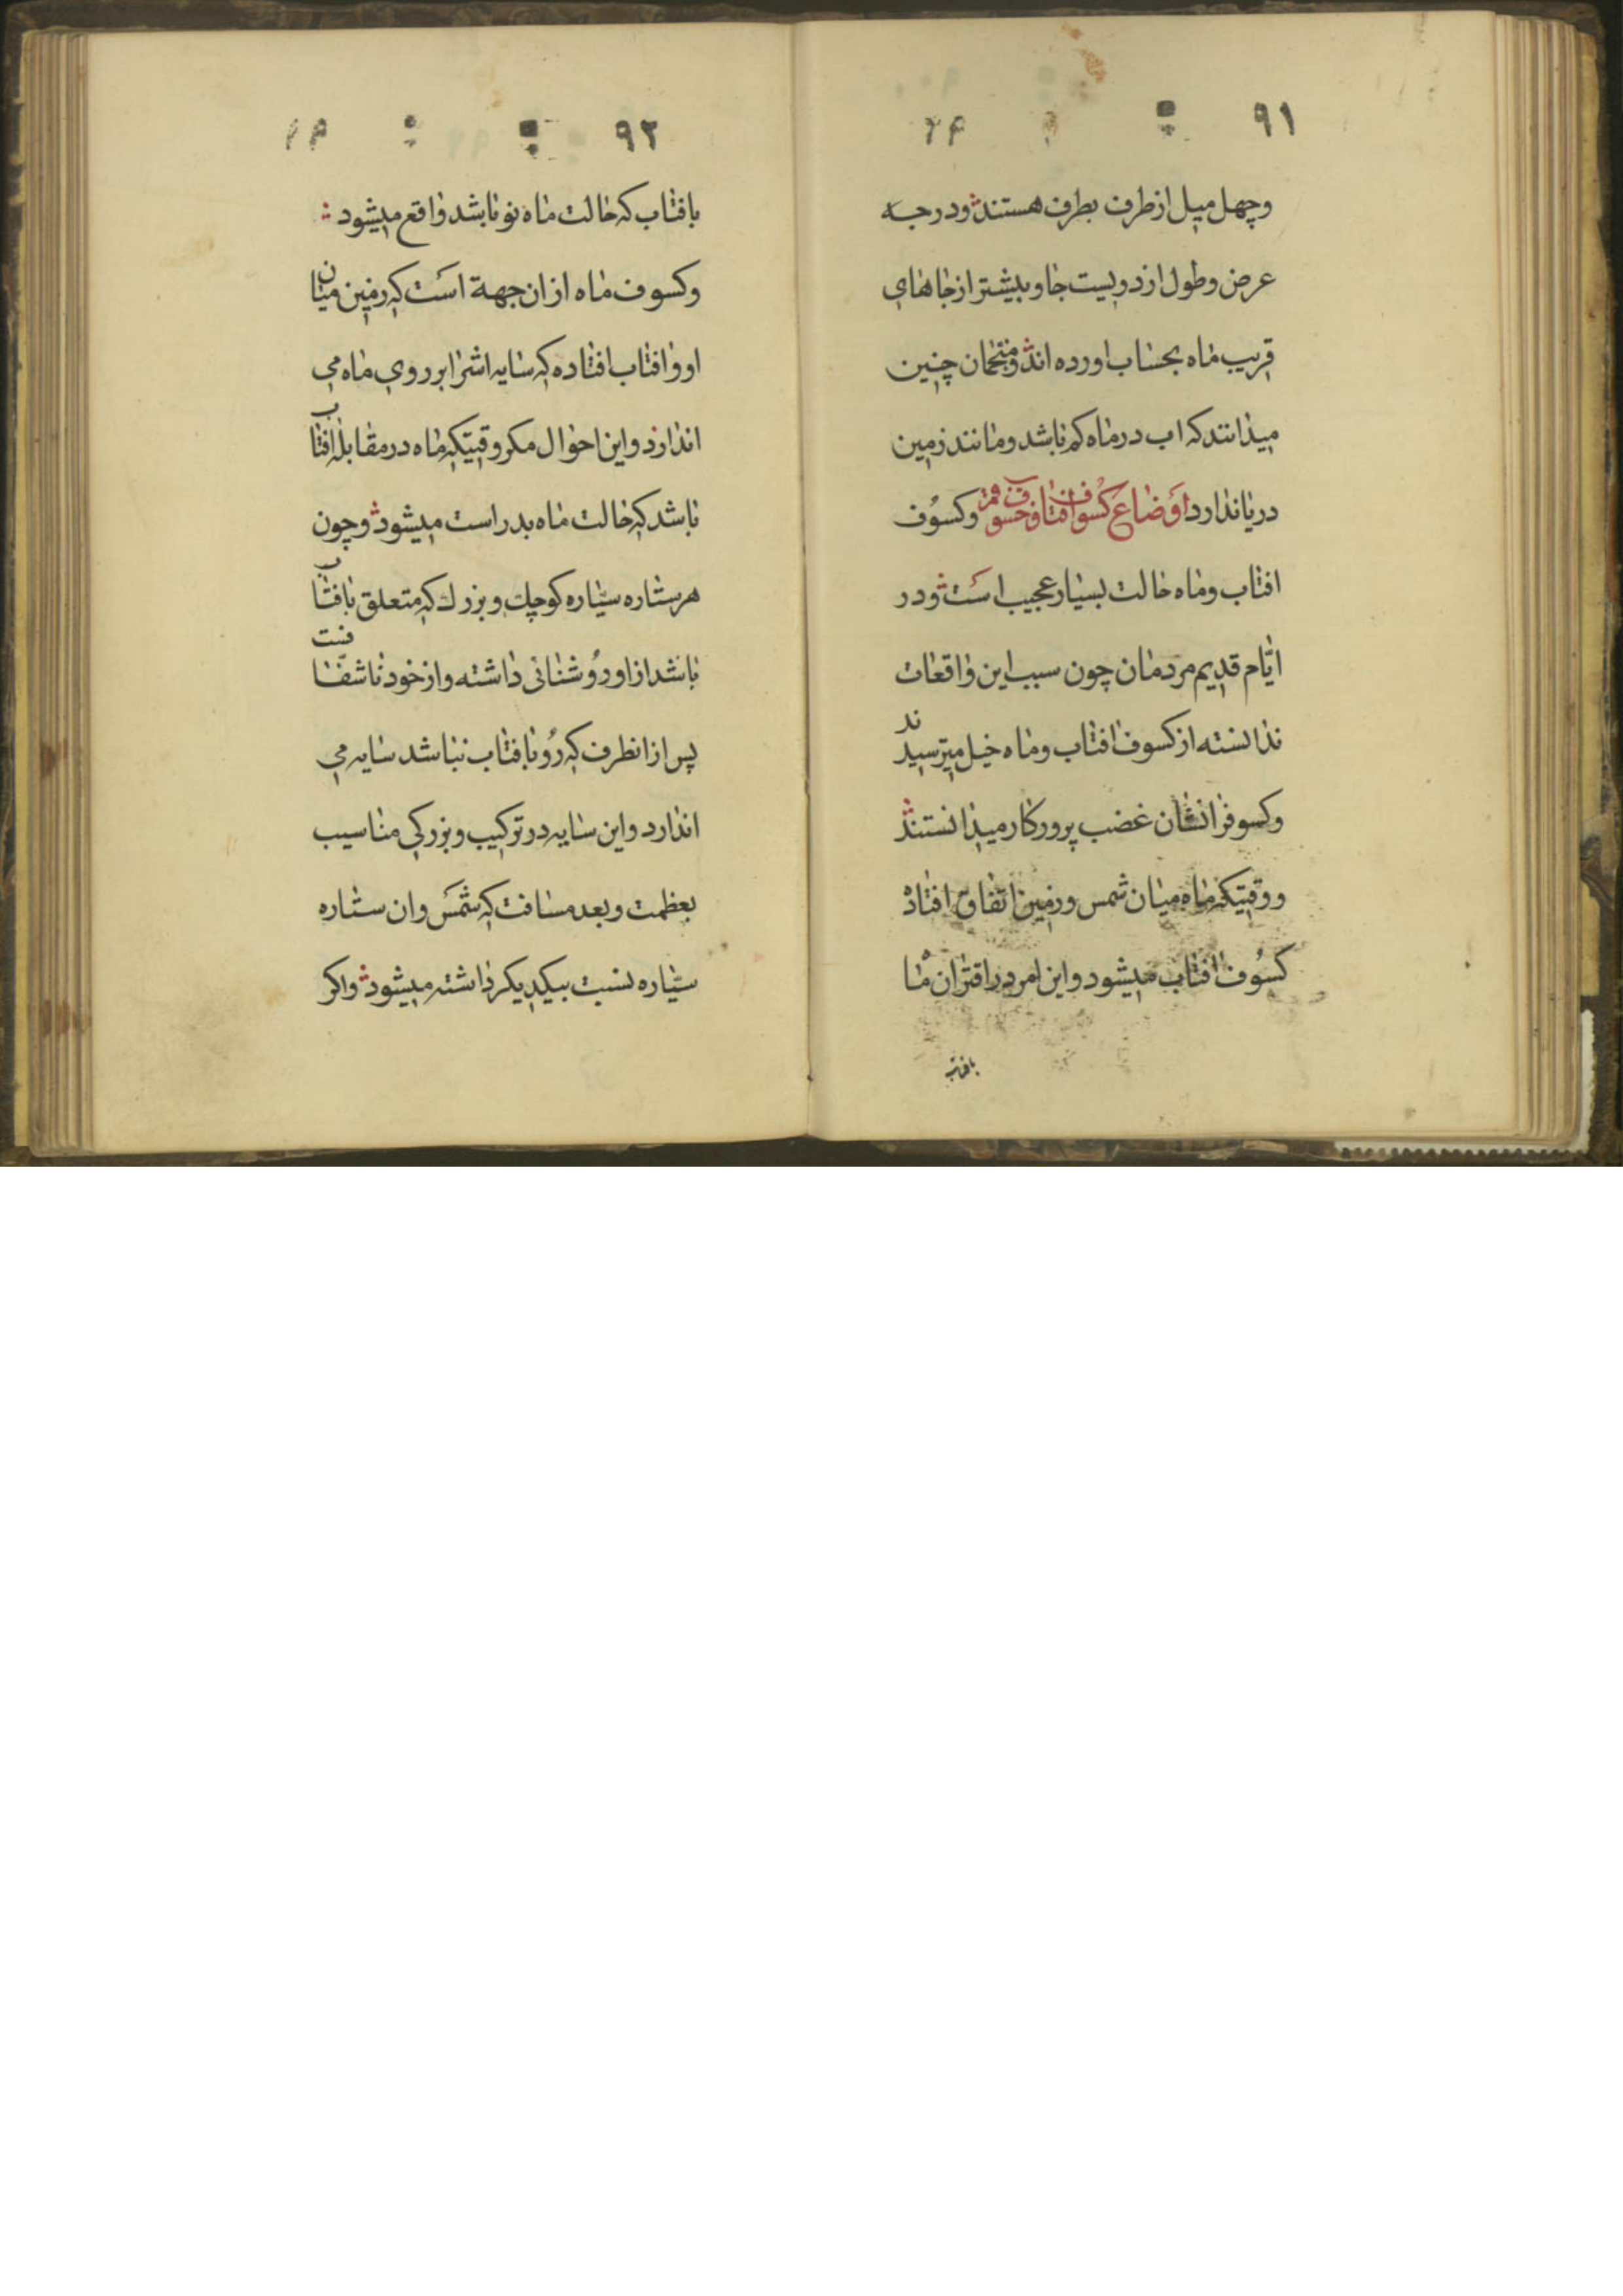 ٩١
وچهل ميل از طرف بطرف هستند ودرجه
عرض وطول از دويست جا وبيشتر از جاهاي
قريب ماه بحساب اورده اند ومنجمان چنين
ميدانند كه اب در ماه كم باشد ومانند زمين
دريا ندارد اوضاع كسوف افتاب وخسوف قمر وكسوف
افتاب وماه حالت بسيار عجيب است ودر
ايّام قديم مردمان چون سبب اين واقعات
ندانسته از كسوف افتاب وماه خيلي ميترسيدند
وكسوفرا نشان غضب پروركار ميدانستند
ووقتيكه ماه ميان شمس وزمين اتفاق افتاد
كسوف افتاب ميشود واين امر در اقتران ماه
بافتاب
٩٢
بافتاب كه حالت ماه نو باشد واقع ميشود
وكسوف ماه از ان جهة است كه زمين ميان
او وافتاب افتاده كه سايه اشرا بر روي ماه مي
اندازد واين احوال مكر وقتيكه ماه در مقابله افتاب
باشد كه حالت ماه بدر است ميشود وچون
هر ستاره سيّاره كوچك وبزرك كه متعلق بافتاب
باشد از او روشنائى داشته واز خود ناشفّافست
پس از انطرف كه رو بافتاب نباشد سايه مي
اندازد واين سايه در تركيب وبزركي مناسب
بعظمت وبعد مسافت كه شمس وان ستاره
سيّاره نسبت بيكديكر داشته ميشود واكر